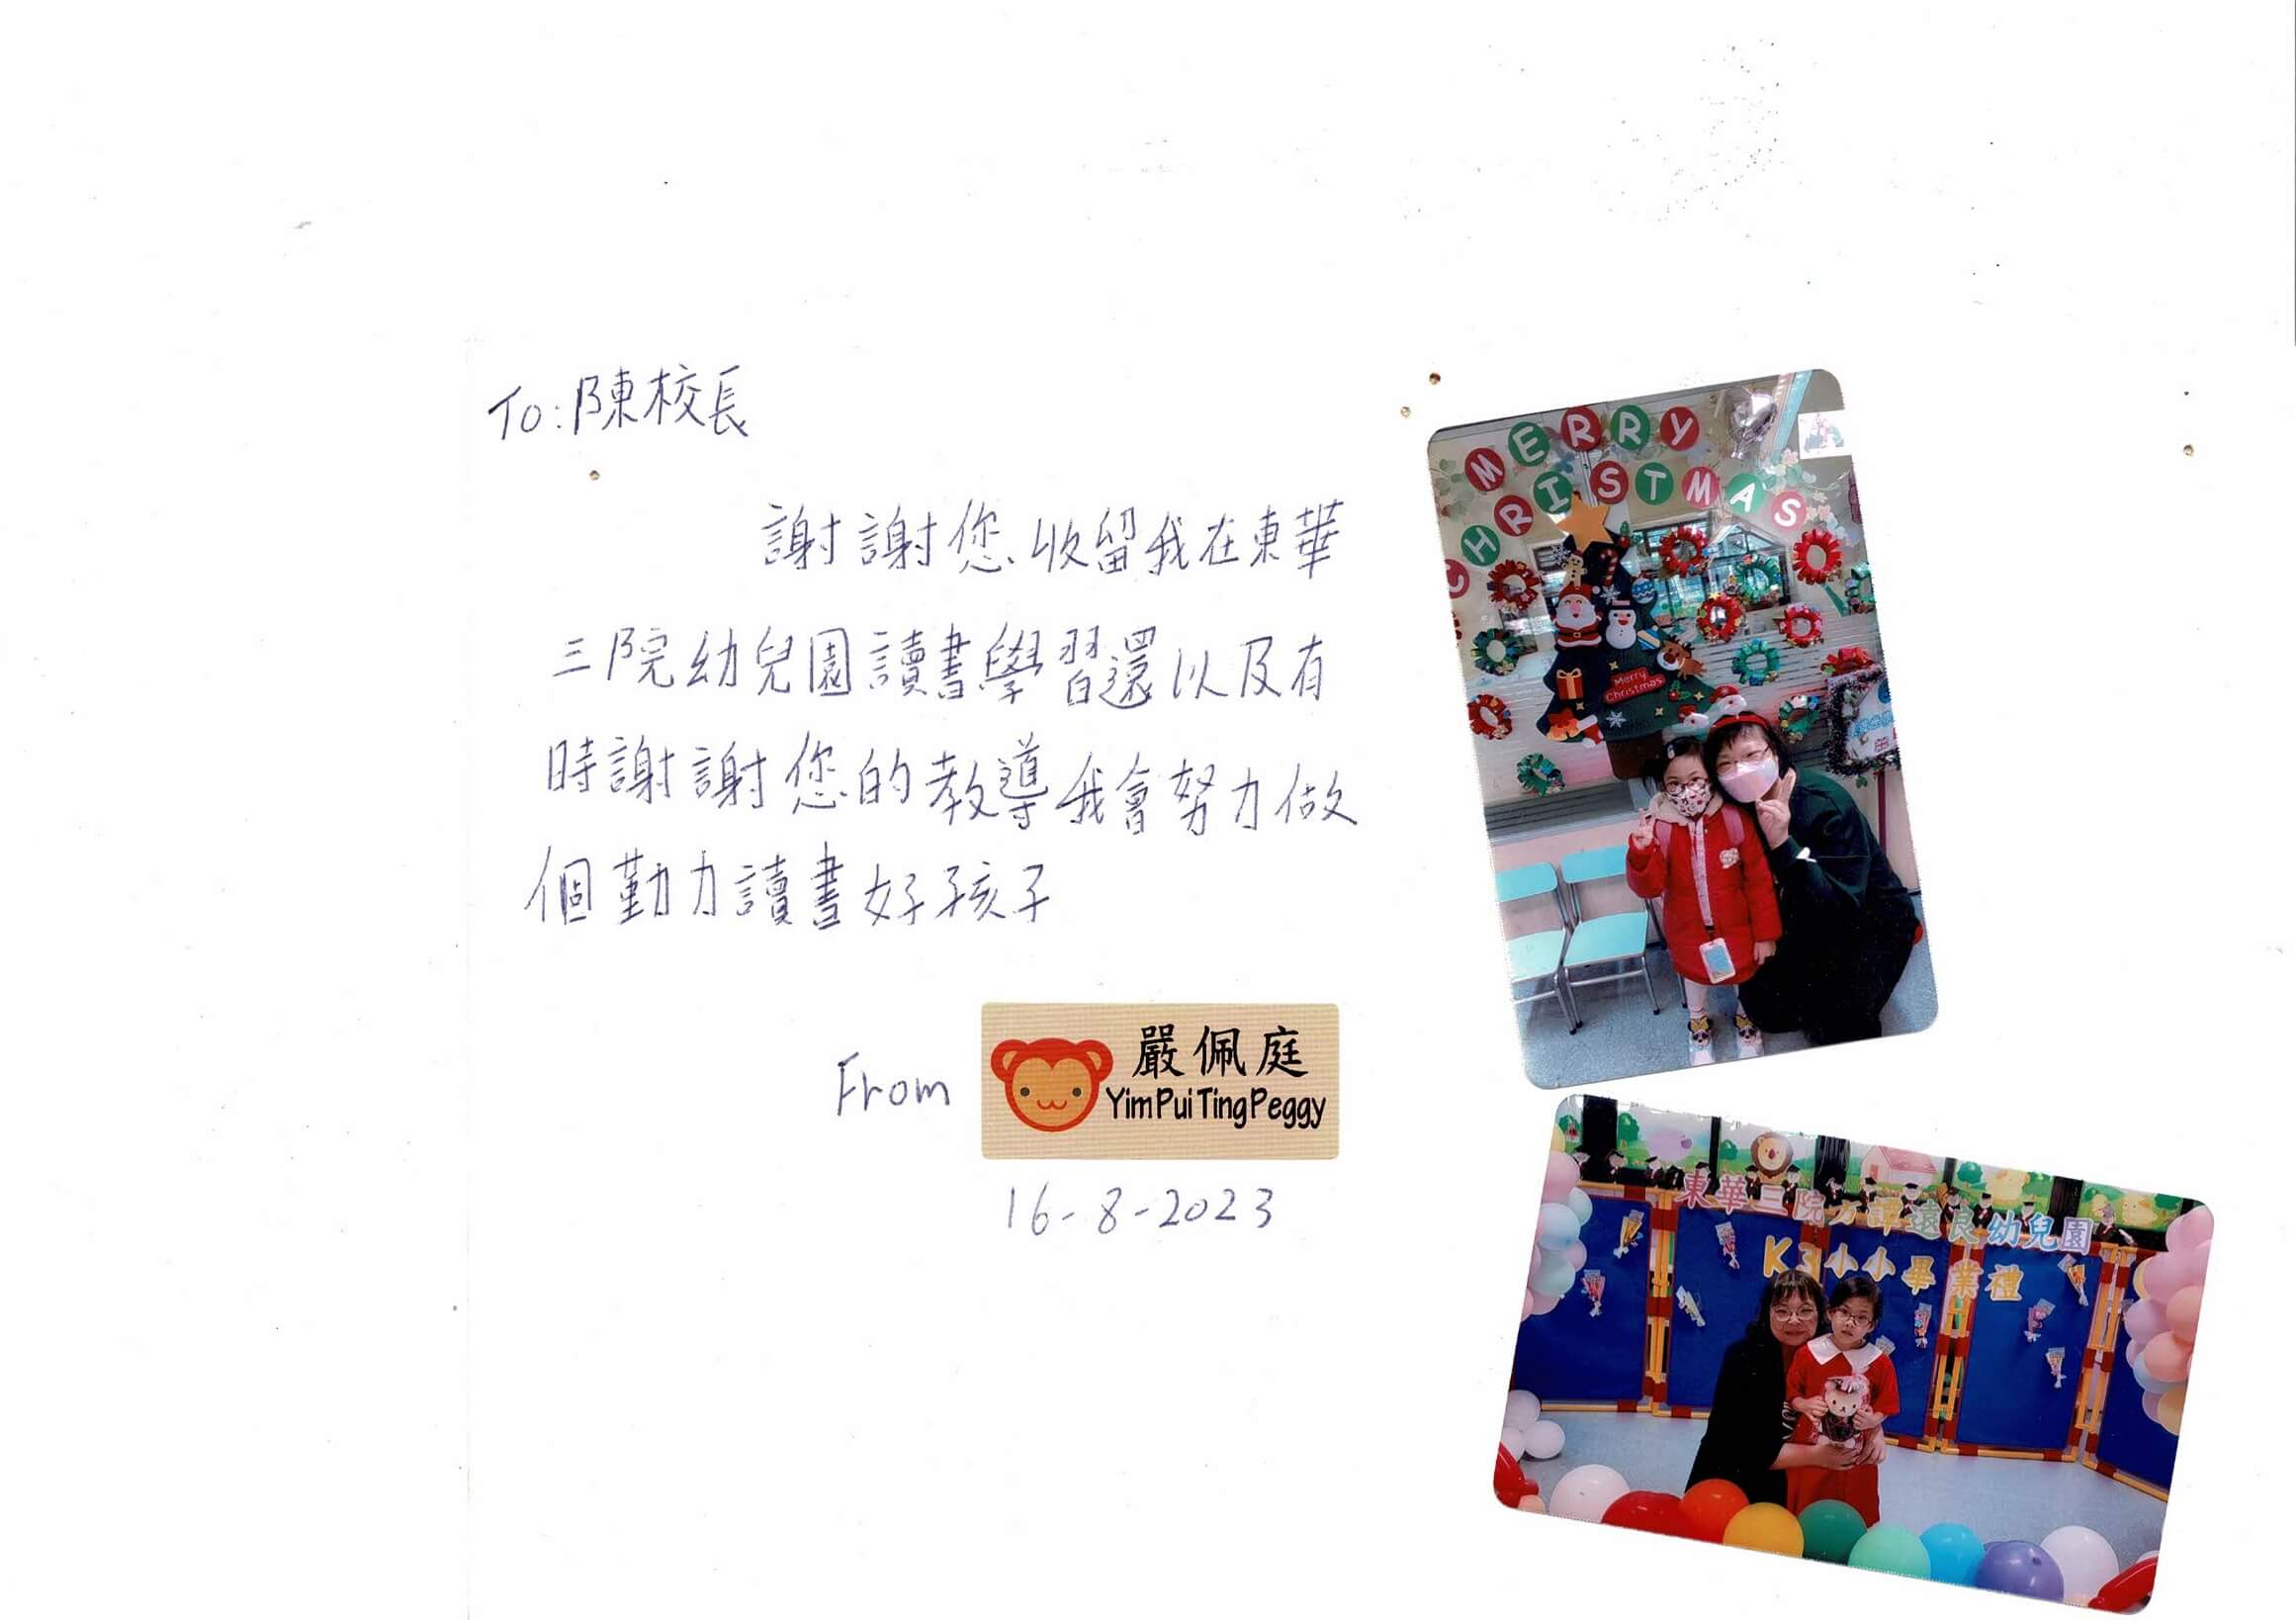 To:陳校長
謝謝您收留我在東華
三院幼兒園讀書學習還以及有
時謝謝您的教導我會努力做
個勤力讀書好孩子
From
嚴佩庭
Yim Pui Ting Peggy
16-8-2023
MERRY
CHRISTMAS
Merry
Christmas
東華三院方譚遠良幼兒園
K3小小畢業禮